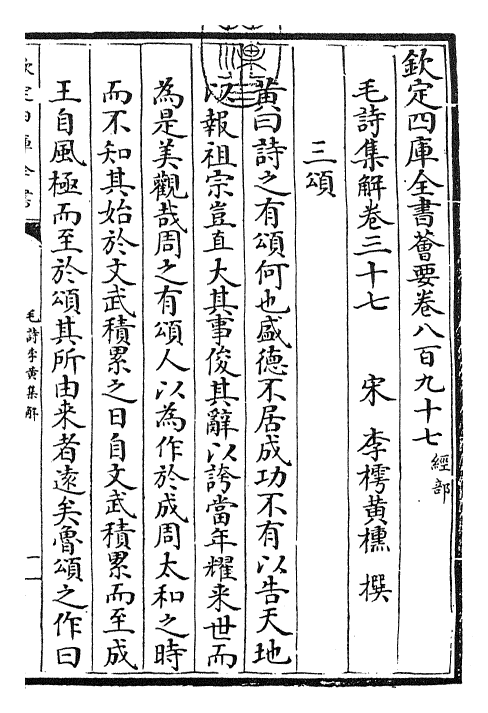 欽定四庫全書薈要卷八百九十七經部
毛詩集解卷三十七　宋　李樗黃櫄　撰
三頌
黃曰詩之有頌何也盛德不居成功不有以告天地
以報祖宗豈直大其事俊其辭以誇當年耀来世而
為是美觀哉周之有頌人以為作於成周太和之時
而不知其始於文武積累之日自文武積累而至成
王自風極而至於頌其所由来者遠矣魯頌之作曰
欽定四庫全書
毛詩李黃集解